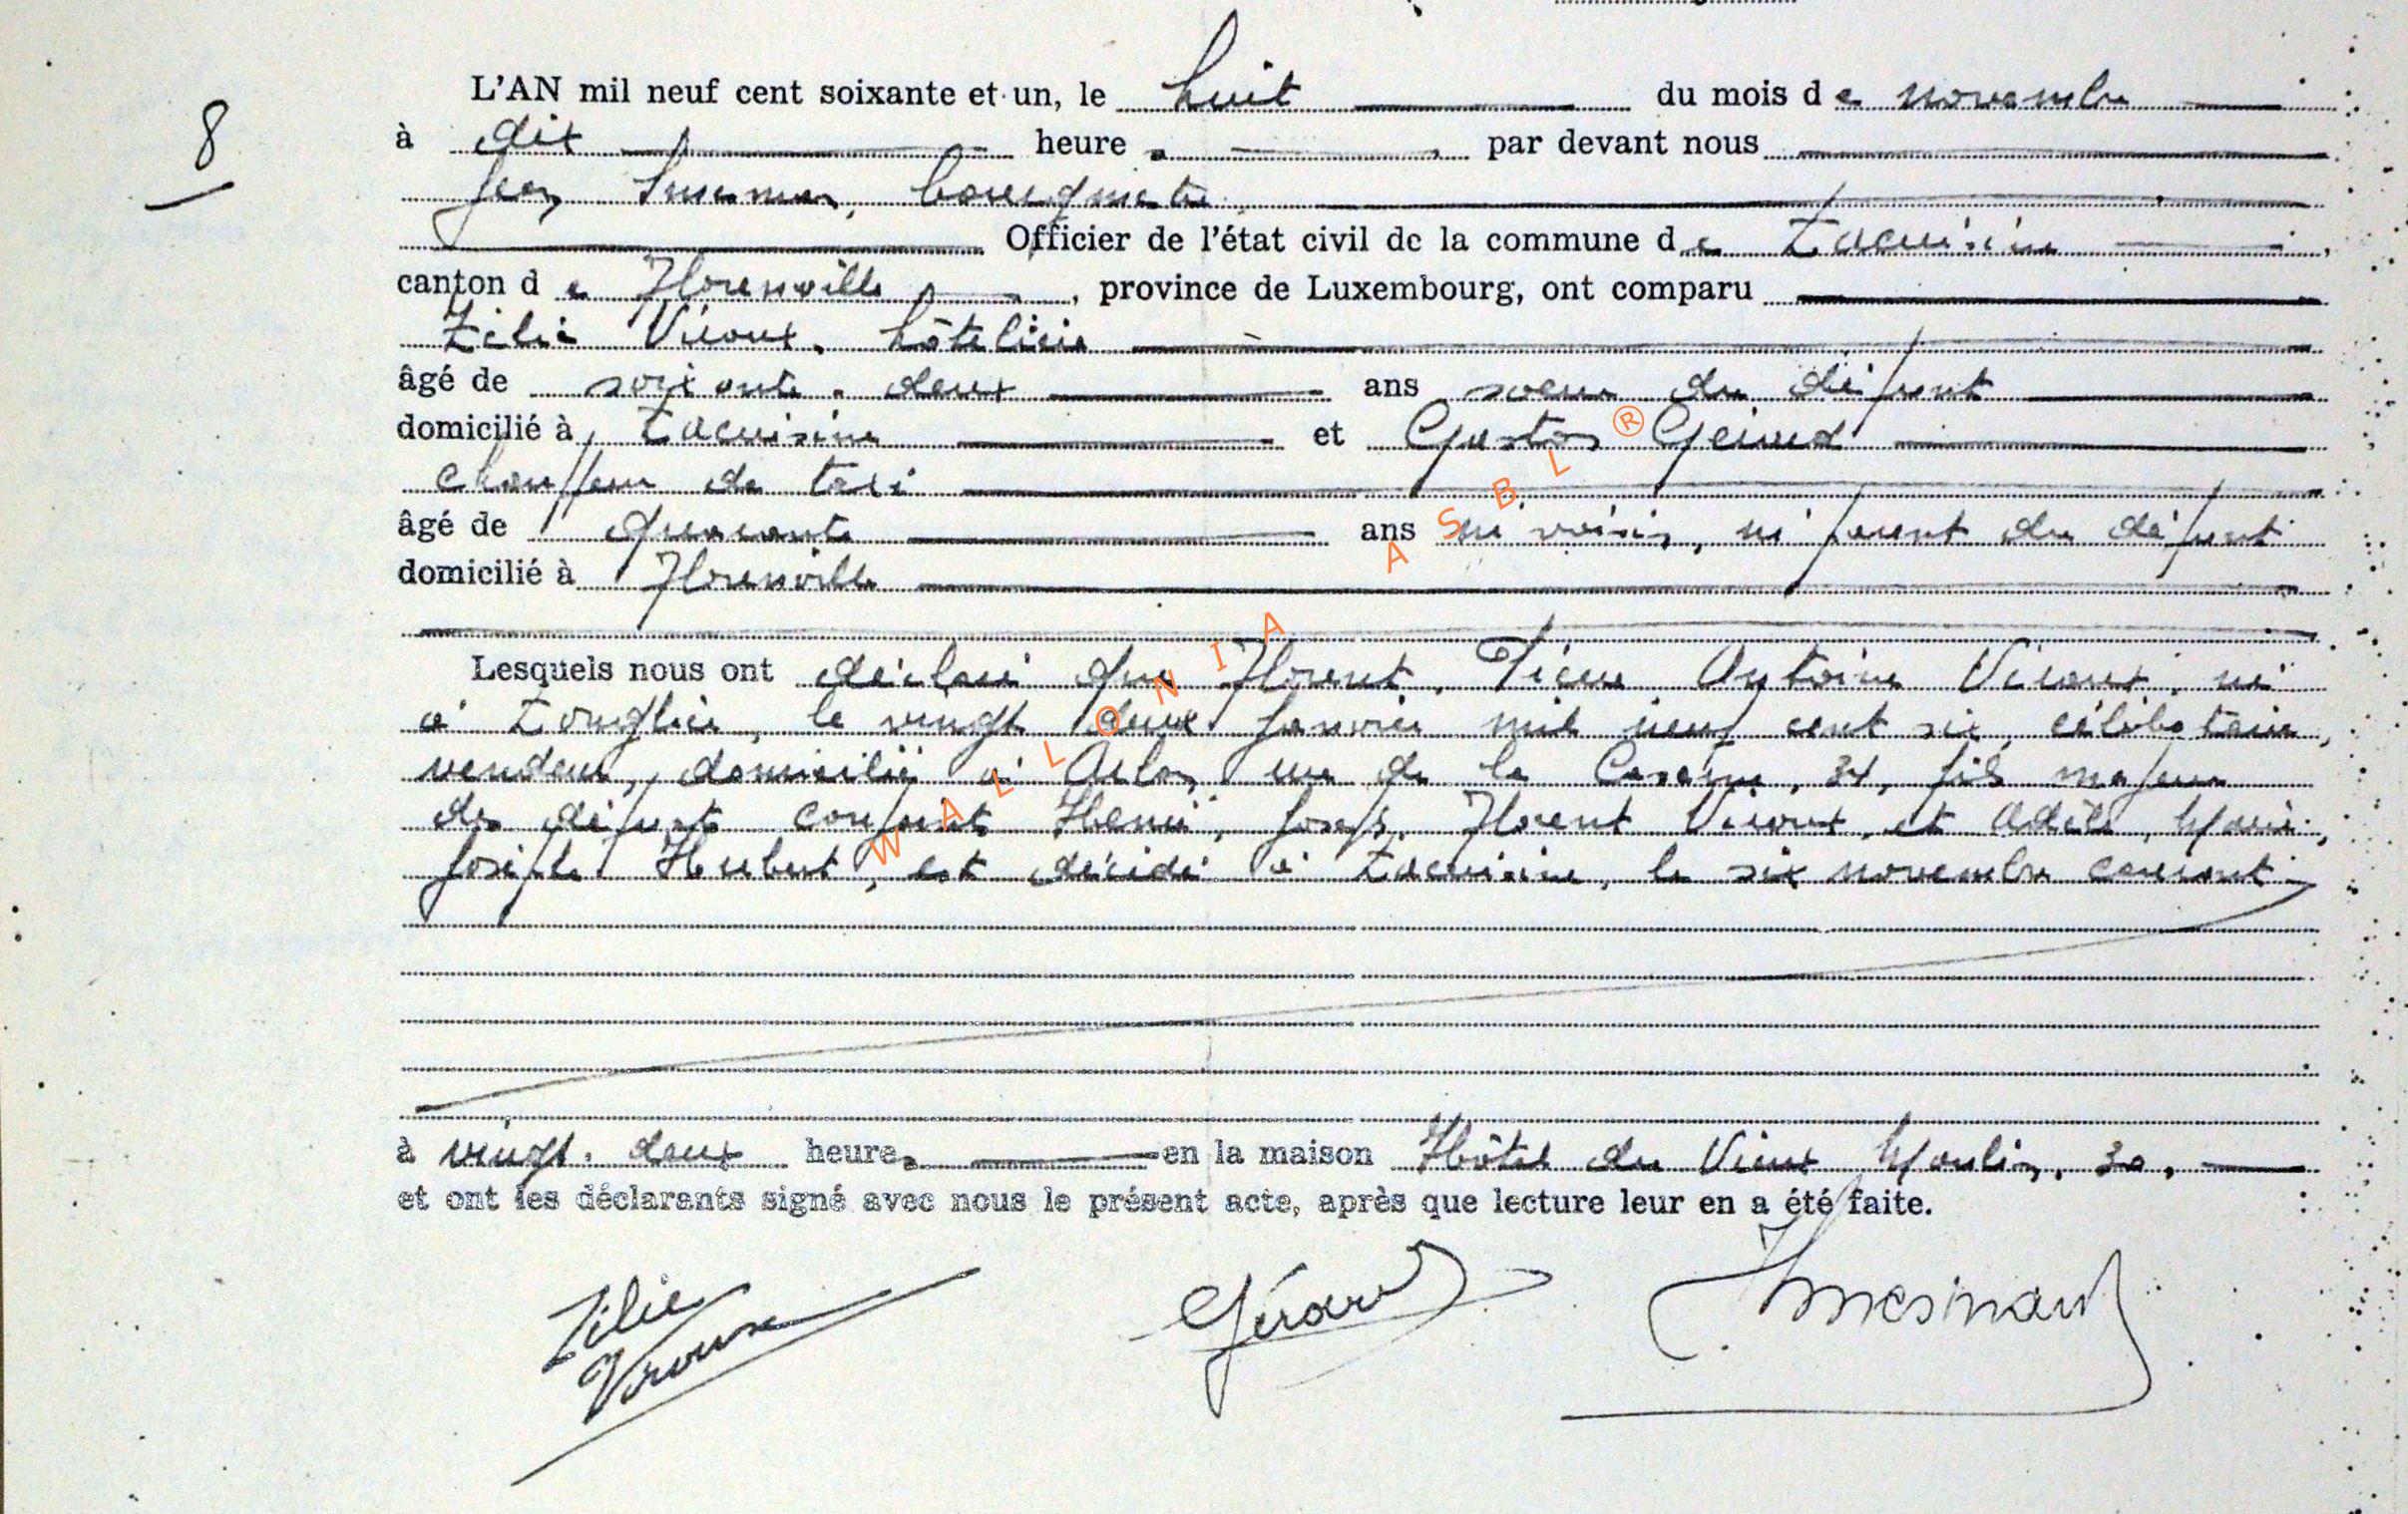 8
L'AN mil neuf cent soixante et un, le huit du mois de novembre
à dix heures, par devant nous
Jean, bourgmestre,
Officier de l'état civil de la commune de Lacuisine,
canton de Florenville, province de Luxembourg, ont comparu
ZélieViroux, hôtelière
âgé de soixante-deux ans soeur du défunt
domicilié à Lacuisine et Gaston Gérard
chauffeur de taxi
âgé de quarante ans ni voisin, ni parent du défunt
domicilié à Florenville
Lesquels nous ont déclaré que Florent, Antoine Viroux, né
à Longlier, le vingt deux janvier mil neuf cent six, célibataire,
vendeur, domicilié à Arlon, rue de la Caserne, 34, fils majeur
des défunts conjoints Henri, Joseph, Florent Viroux, et Adèle, Marie,
Josèphe Hubert, est décédé à Lacuisine, le six novembre courant
à vingt-deux heures en la maison Hôtel du Vieux Moulin, 30,
et ont les déclarants signé avec nous le présent acte, après que lecture leur en a été faite.
Zélie
Viroux
Gérard
WALLONIA ASBL ®